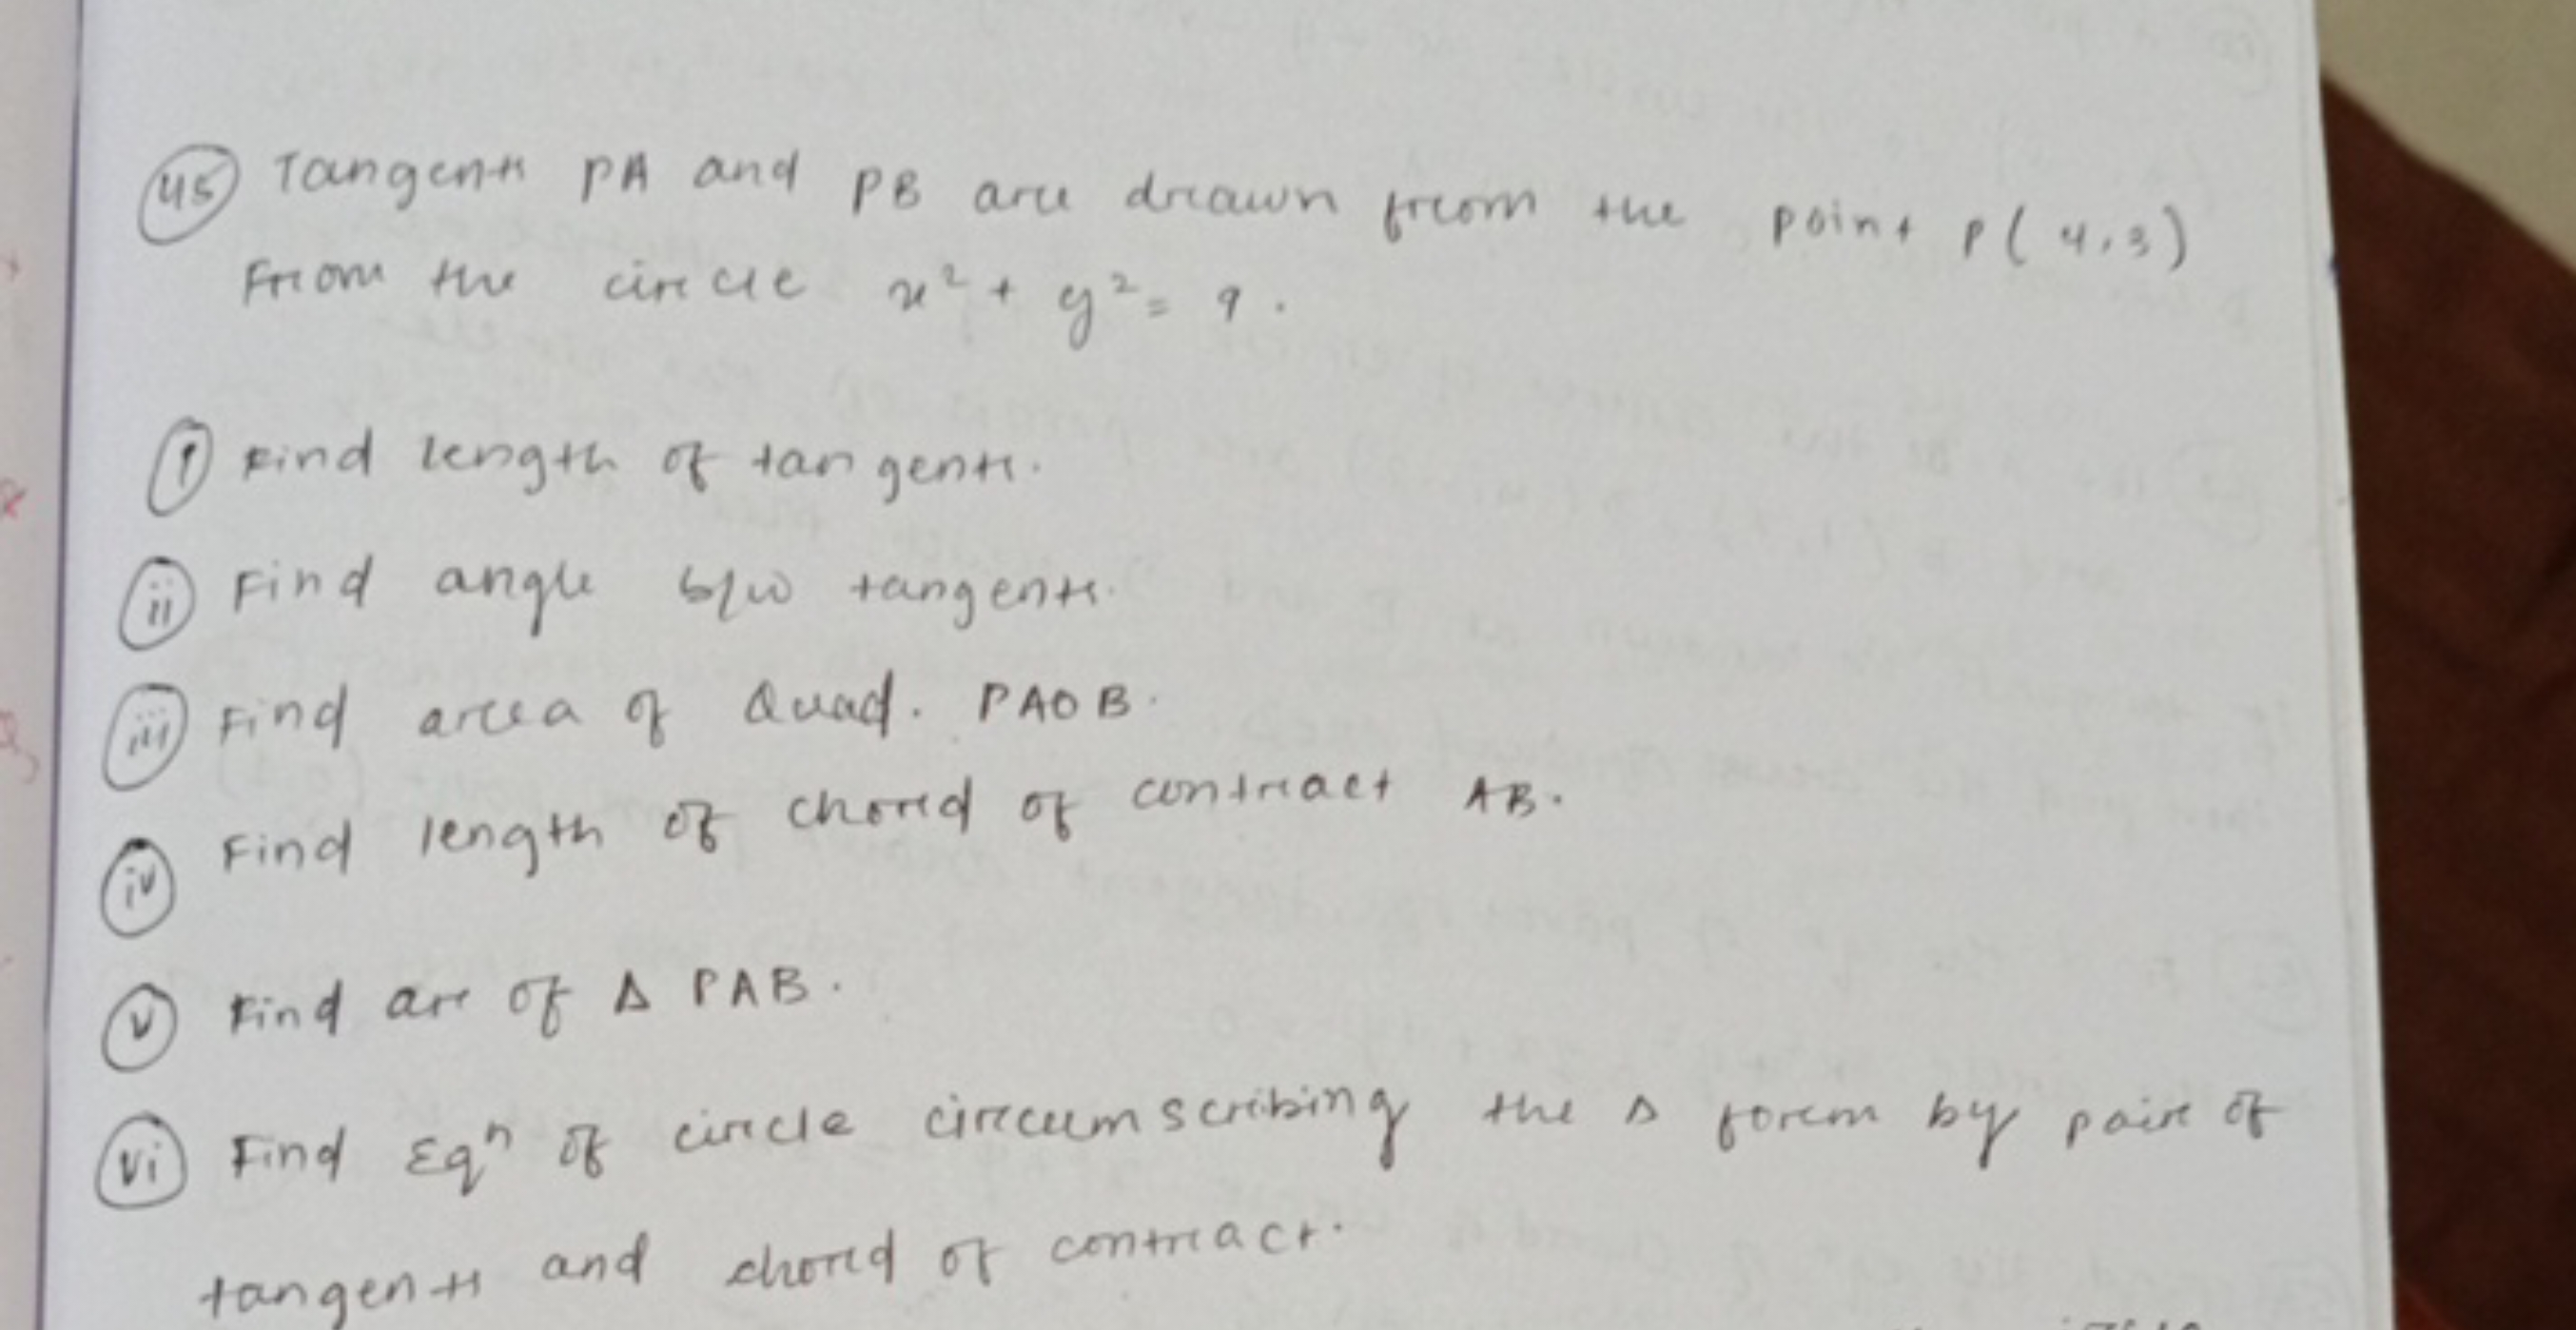 45 Tangents PA and PB are drawn from the point P(4,3)
From the circle x² + y² = 9.
i Find length of tangents.
ii Find angle b/w tangents.
iii Find area of Quad. PAOB.
iv Find length of chord of contract AB.
v Find are of Δ PAB.
vi Find Eqⁿ of circle circumscribing the Δ form by pair of
tangents and chord of contract.